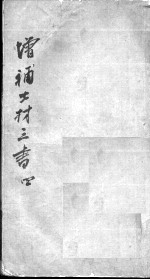 增補士材三書 四